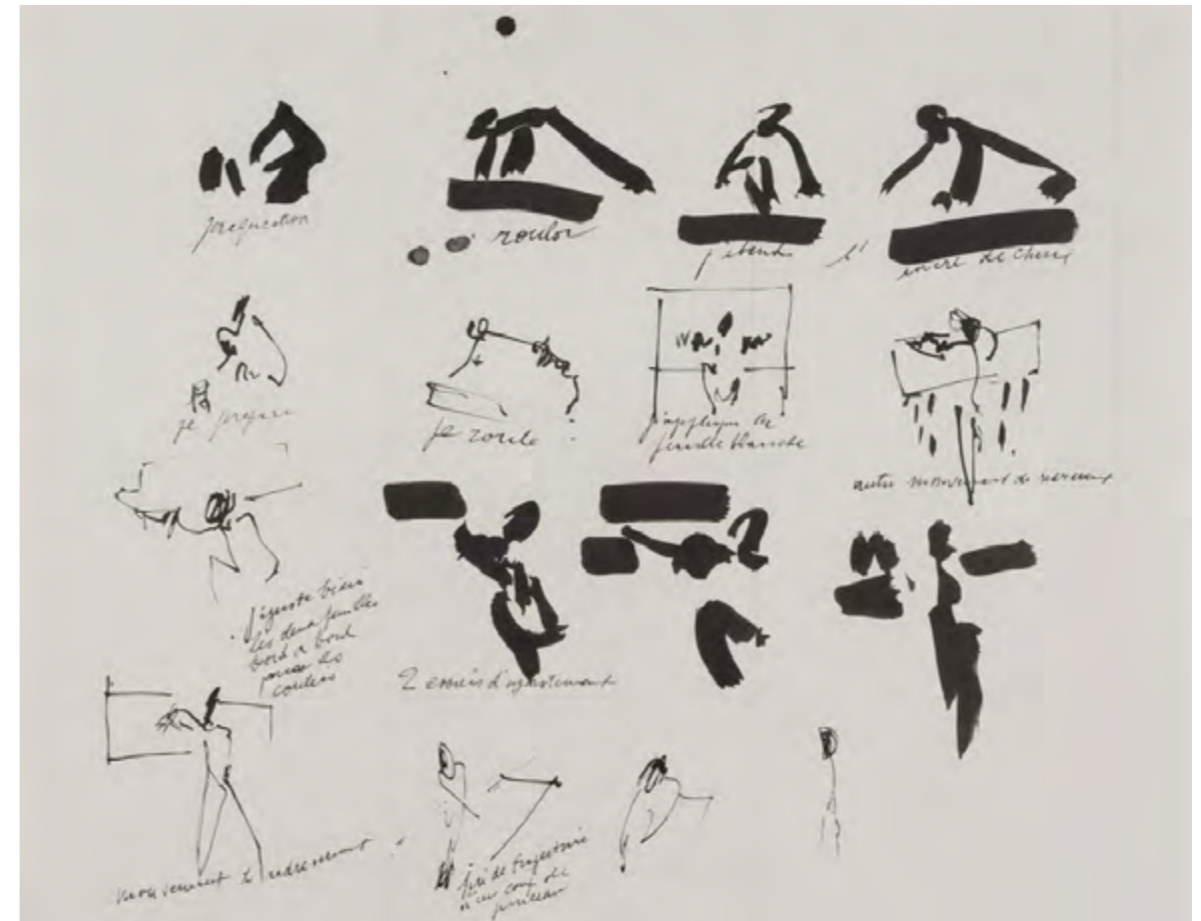 préparation
rouler
j'étends l' encre de chine
je prépare
je roule
j'applique la
feuille blanche
autre mouvement de
j'ajuste bien
les deux feuilles
bord à bord
pour les
2 essais d'ajustement
mouvement de redressement
de trajectoire
d'un coup de
pinceau